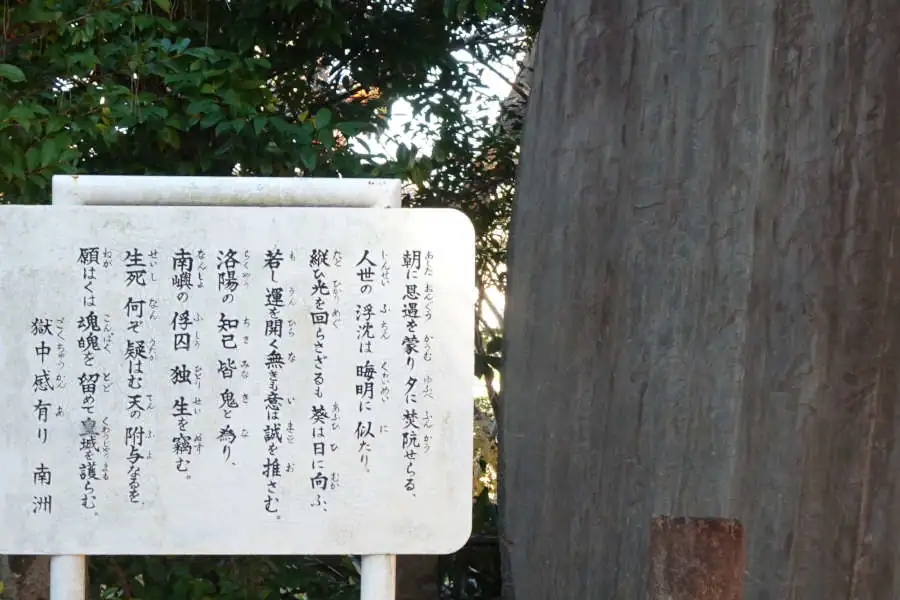 朝に恩遇を蒙り 夕に焚阬せらる、
人世の浮沈は 晦明に似たり。
縦ひ光を回らさざるも 葵は日に向ふ、
若し運を開く無きも 意は誠を推さむ。
洛陽の知己 皆鬼と為り、
南嶼の俘囚 独生を竊む。
生死何ぞ疑はむ 天の附与なるを、
願はくは魂魄を留めて 皇城を護らむ。
獄中感有り 南洲